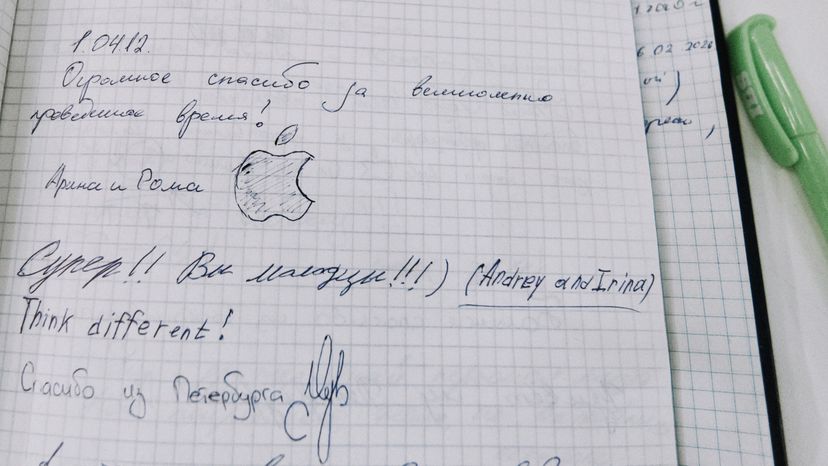 1.04.12.
Огромное спасибо за великолепно
проведенное время!
Арина и Рома
Супер!! Вы молодцы!!!)
(Andrey and Irina)
Think different!
Спасибо из Петербурга